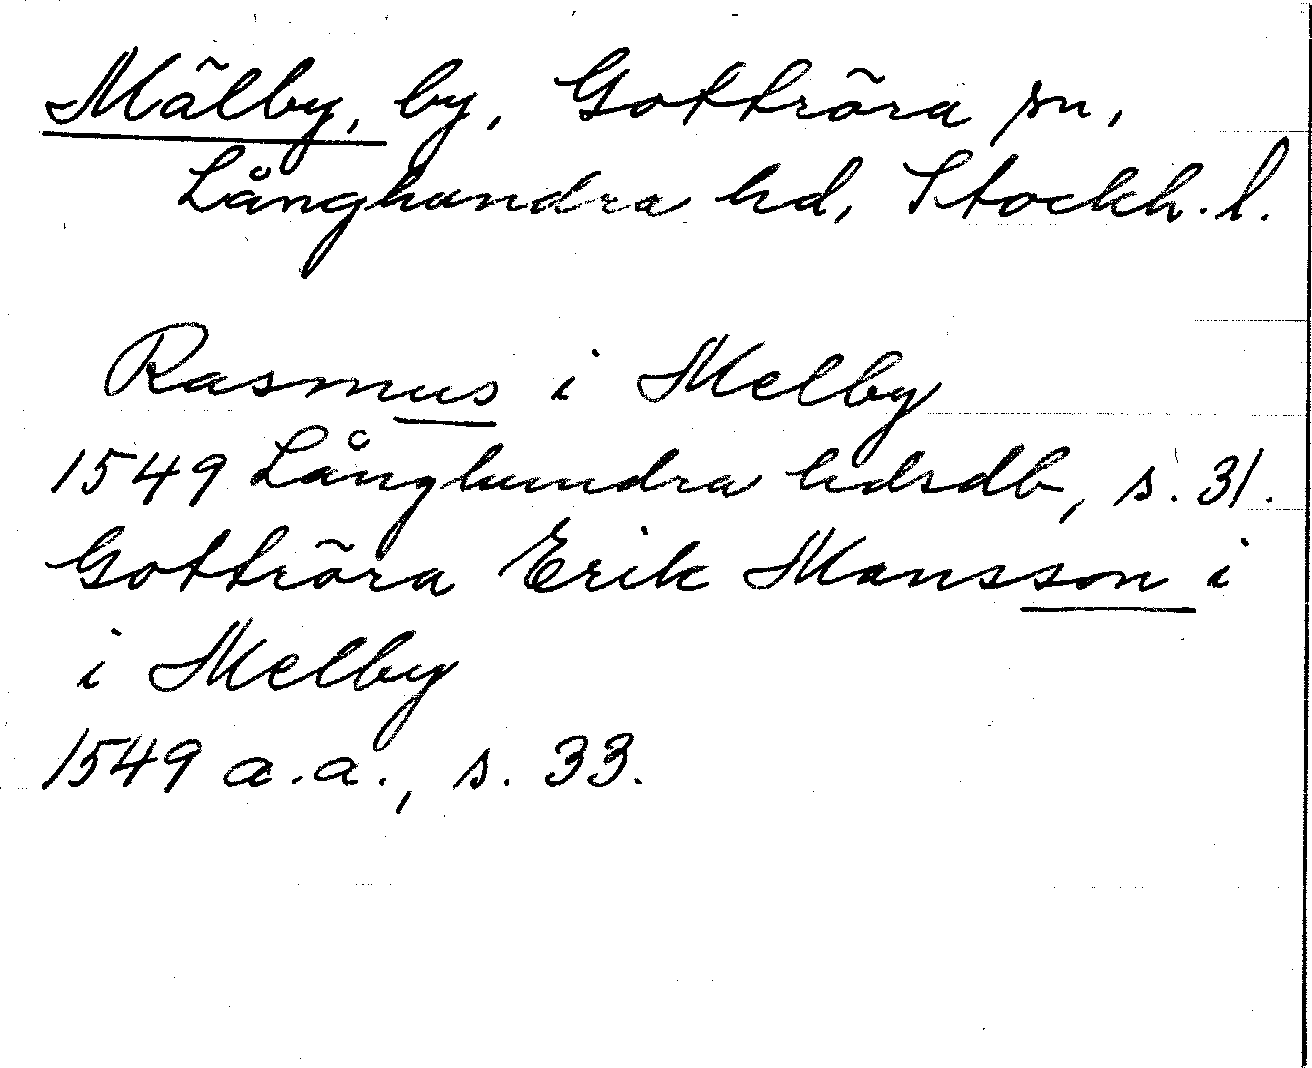 Mälby, by, Gottröra sn,
Långhundra hd, Stockh. l.
Rasmus i Melby
1549 Långhundra hdsdb, s. 31.
Gottröra Erik Mansson i
i Melby
1549 a.a., s. 33.